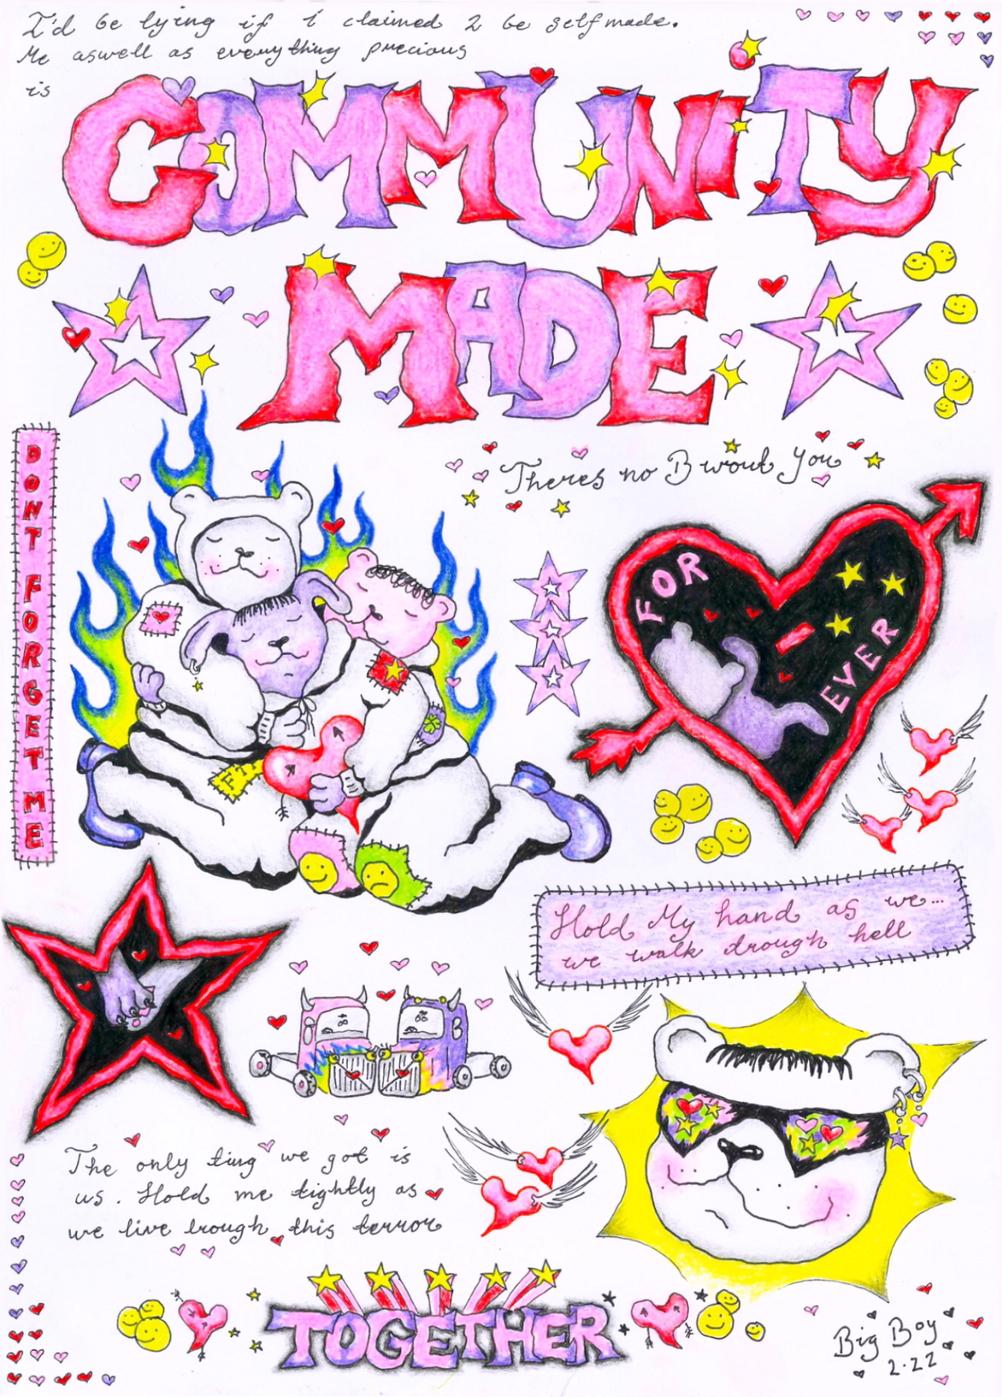 I'd be lying if i claimed 2 be selfmade.
Me aswell as everything precious
is
COMMUNITY
MADE
DONT FORGET ME
Theres no B wout You
FOR
EVER
Hold My hand as we...
we walk drough hell
The only ting we got is
us. Hold me tightly as
we live trough this terror
TOGETHER
Big Boy
2.22